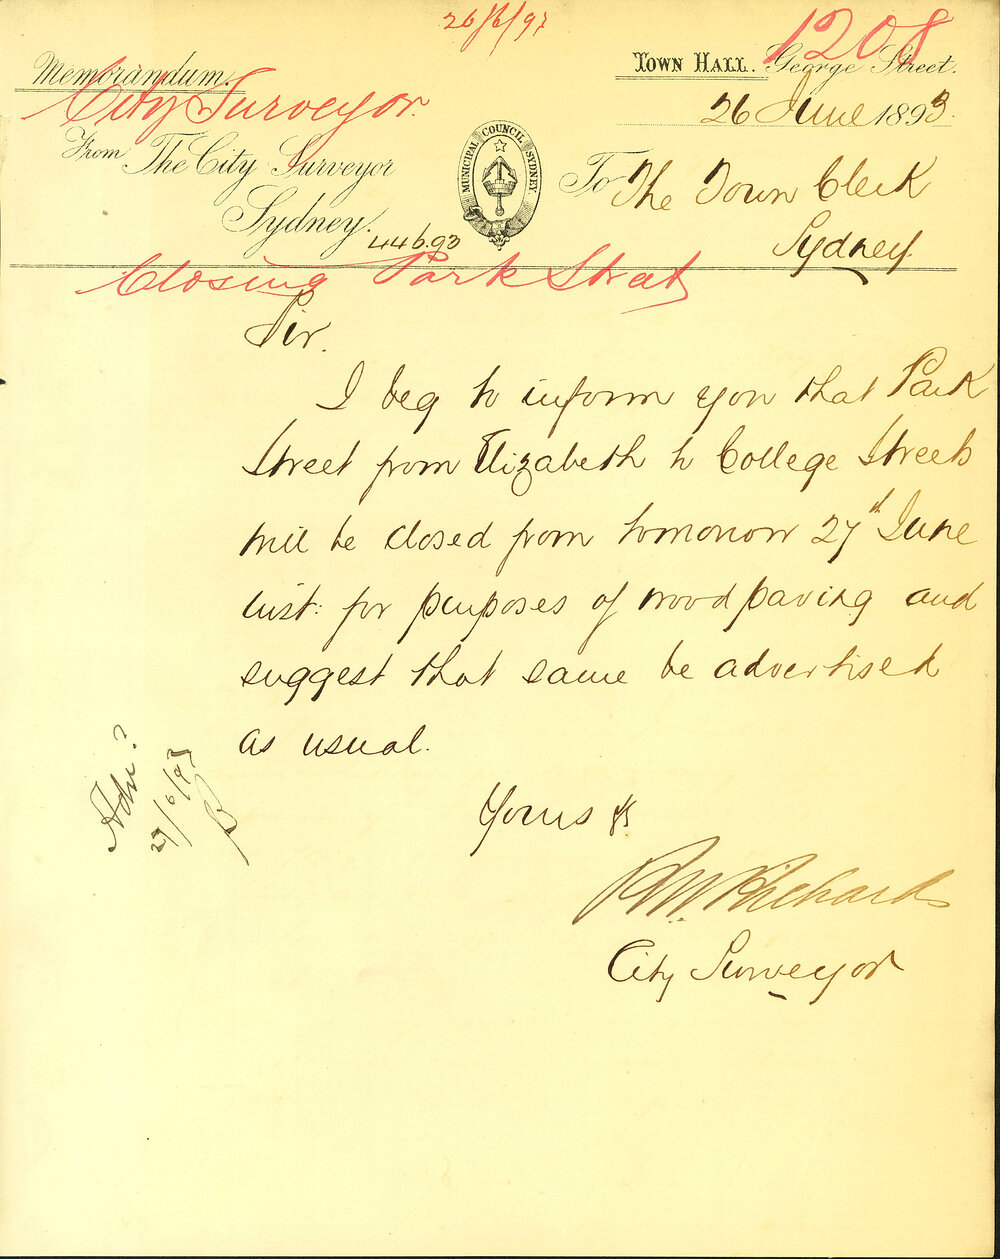 26/6/93
1208
Memorandum.
Town Hall. George Street.
City Surveyor.
26 June 1893.
From The City Surveyor
Sydney.
MUNICIPAL COUNCIL SYDNEY.
To The Town Clerk
Sydney
446.93
Closing Park Street
Sir.
I beg to inform you that Park
Street from Elizabeth to College Streets
will be closed from tomorrow 27th June
inst: for purposes of wood paving and
suggest that same be advertised
as usual.
Advt?
27/6/93
B
Yours &c
RW Richards
City Surveyor